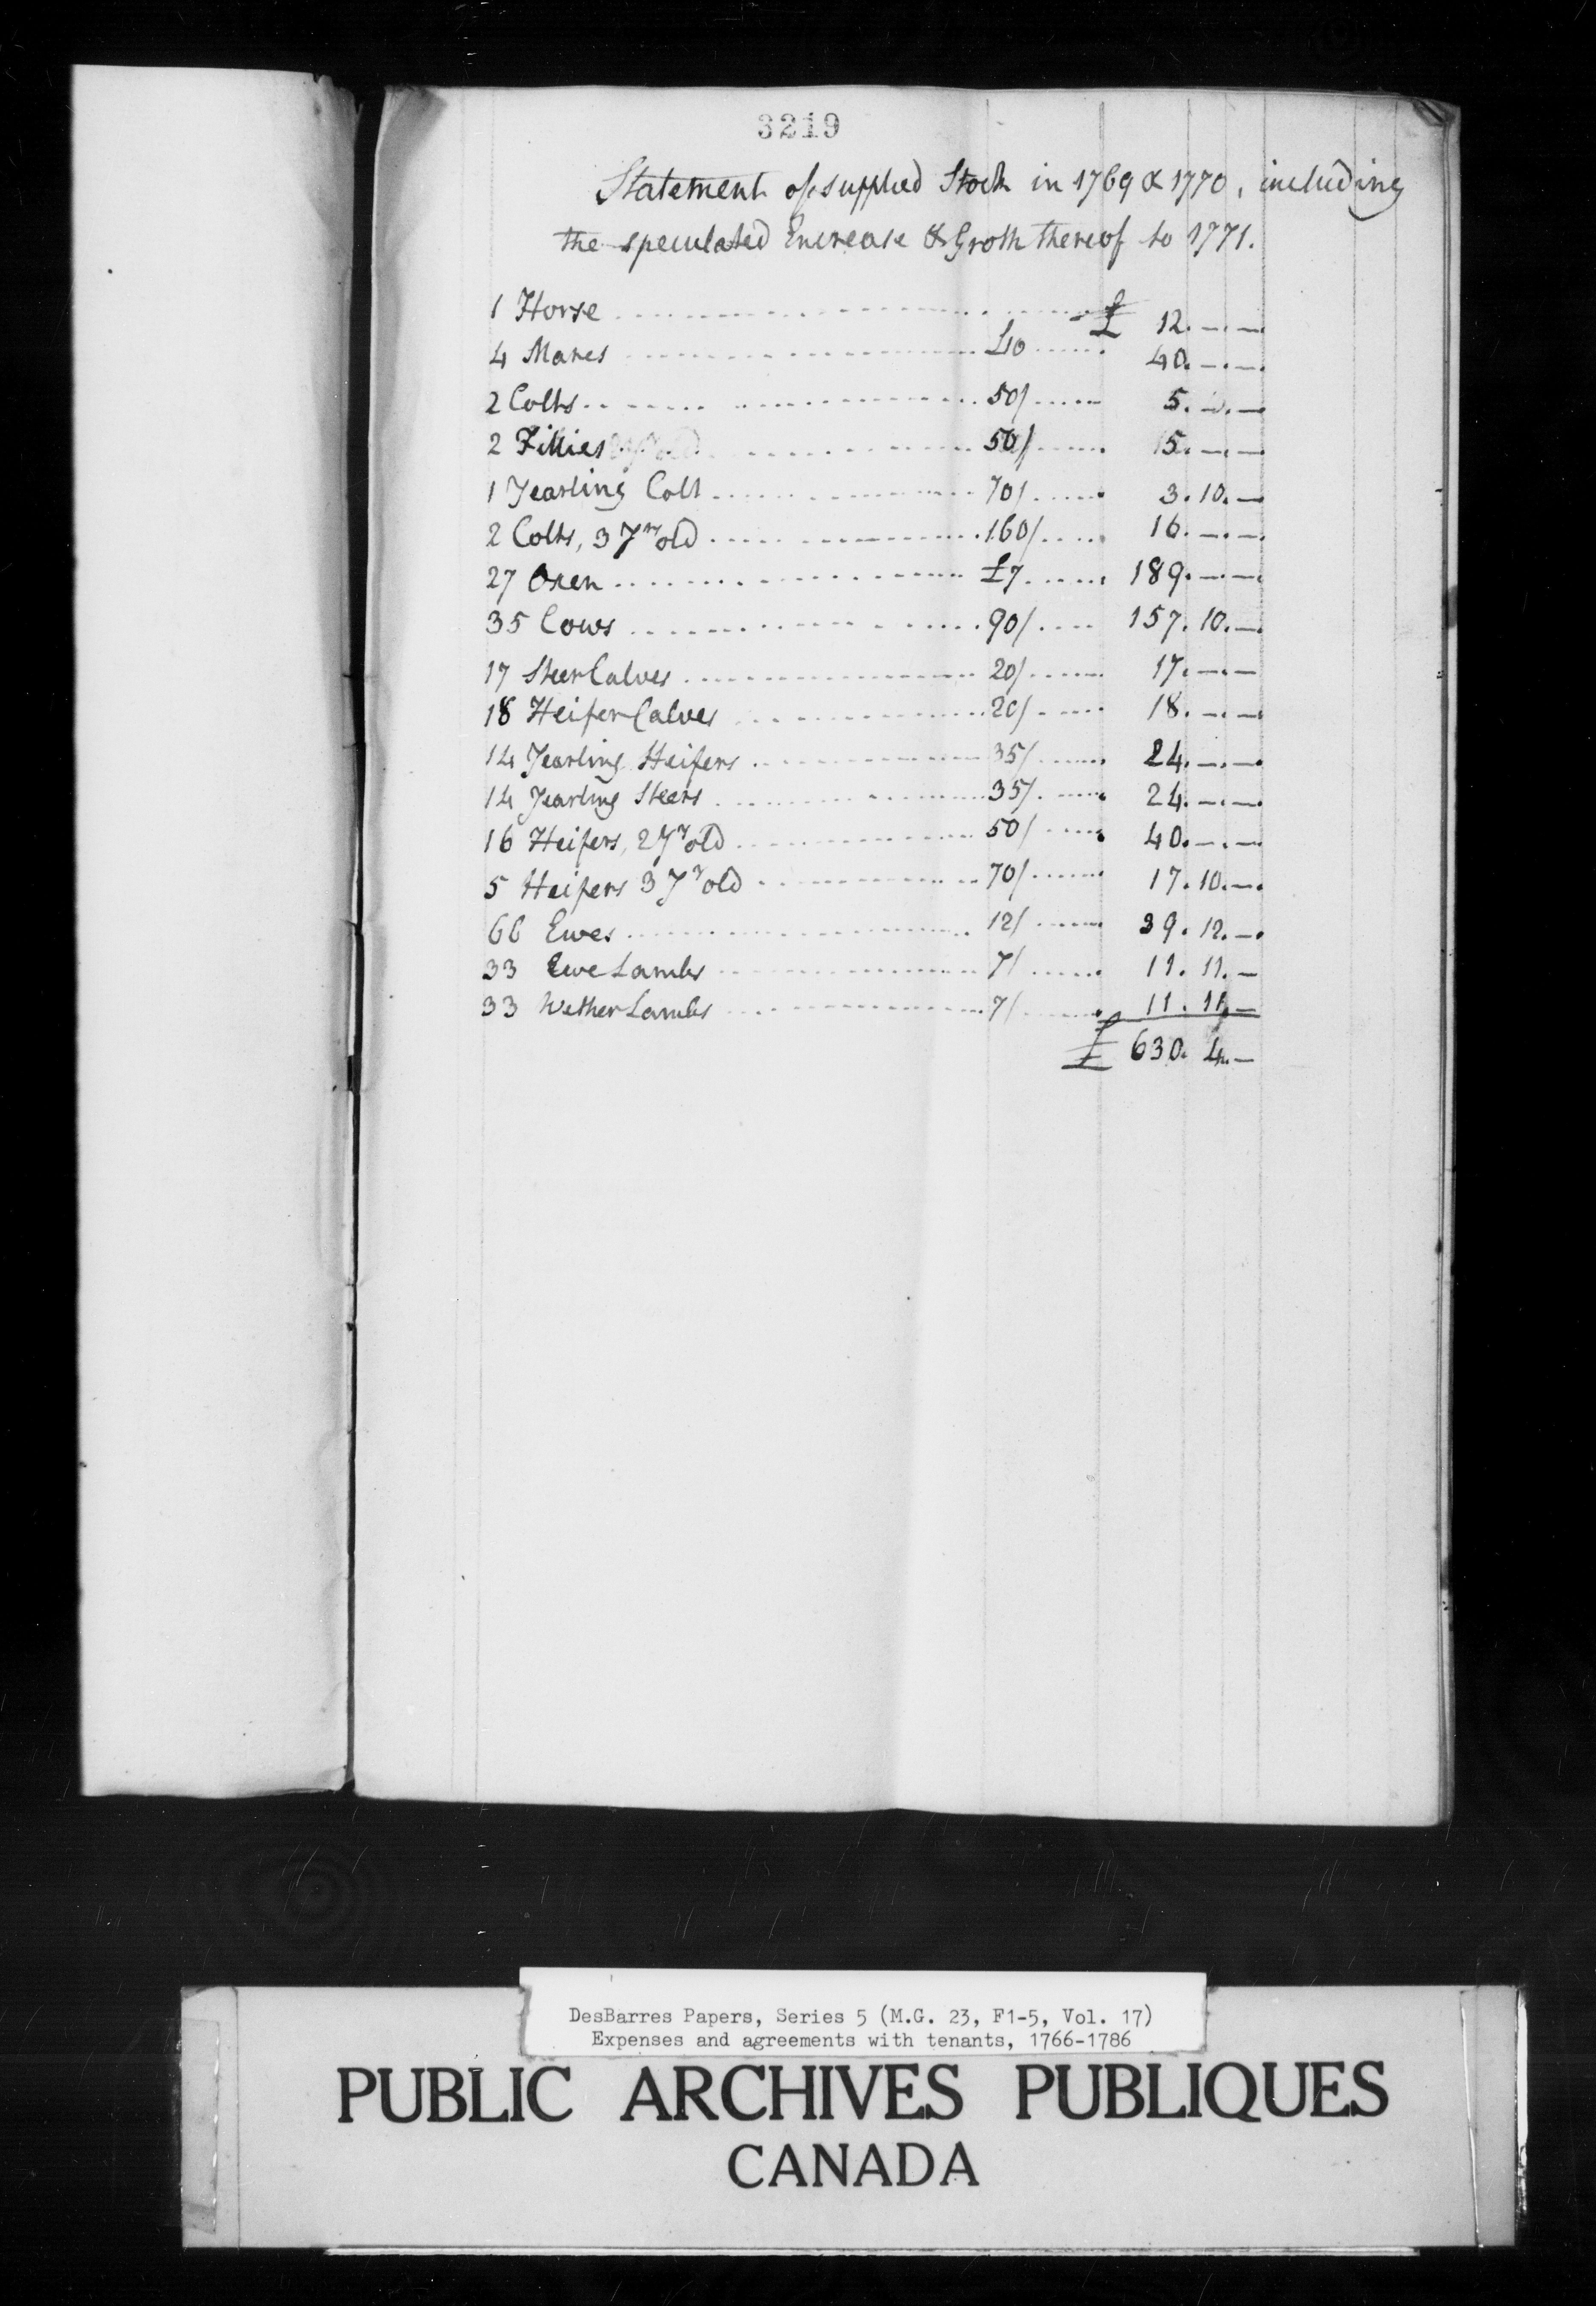 3219
Statement of supplied Stock in 1769 & 1770, including
the speculated Encrease & Groth thereof to 1771.
1 Horse £ 12. — . —
4 Mares £10 40. — . —
2 Colts 50/ 5. — . —
2 Fillies 50/ 15. — . —
1 Yearling Colt 70/ 3. 10. —
2 Colts, 3 Yr old 160/ 16. — . —
27 Oxen £7 189. — . —
35 Cows 90/ 157. 10. —
17 Steer Calves 20/ 17. — . —
18 Heifer Calves 20/ 18. — . —
14 Yearling Heifers 35/ 24. — . —
14 Yearling Steers 35/ 24. — . —
16 Heifers, 2 Yr old 50/ 40. — . —
5 Heifers 3 Yr old 70/ 17. 10. —
66 Ewes 12/ 39. 12. —
33 Ewe Lambs 7/ 11. 11. —
33 Wether Lambs 7/ 11. 11. —
£ 630. 4. —
DesBarres Papers, Series 5 (M.G. 23, F1-5, Vol. 17)
Expenses and agreements with tenants, 1766-1786
PUBLIC ARCHIVES PUBLIQUES
CANADA